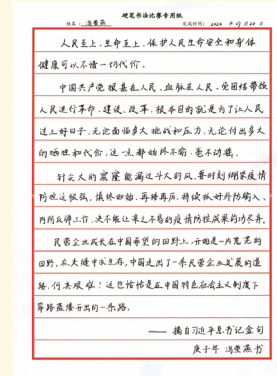 硬笔书法比赛专用纸
姓名：冯雪燕 完成时间：2020年4月20日
人民至上、生命至上，保护人民生命安全和身体
健康可以不惜一切代价。
中国共产党根基在人民、血脉在人民。党团结带领
人民进行革命、建设、改革，根本目的就是为了让人民
过上好日子，无论面临多大挑战和压力，无论付出多大
的牺牲和代价，这一点都始终不渝、毫不动摇。
针尖大的窟窿能漏过斗大的风，要时刻绷紧疫情
防控这根弦，慎终如始、再接再厉，持续抓好外防输入、
内防反弹工作，决不能让来之不易的疫情防控成果前功尽弃。
民营企业成长在中国希望的田野上，开始是一片荒芜的
田野，在夹缝中求生存，中国走出了一条民营企业发展的道
路，何其艰难！这也恰恰是在中国特色社会主义制度下
筚路蓝缕开出的一条路。
—— 摘自习近平总书记金句
庚子年 冯雪燕书